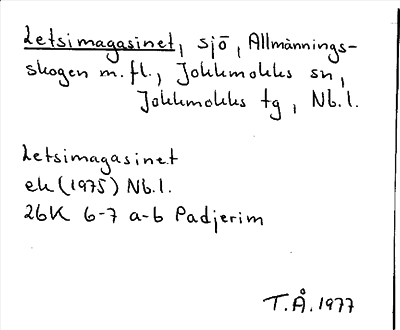 Letsimagasinet, sjö, Allmännings-
skogen m. fl., Jokkmokks sn,
Jokkmokks tg, Nb. l.
Letsimagasinet
ek (1975) Nb. l.
26K 6-7 a-b Padjerim
T.Å. 1977